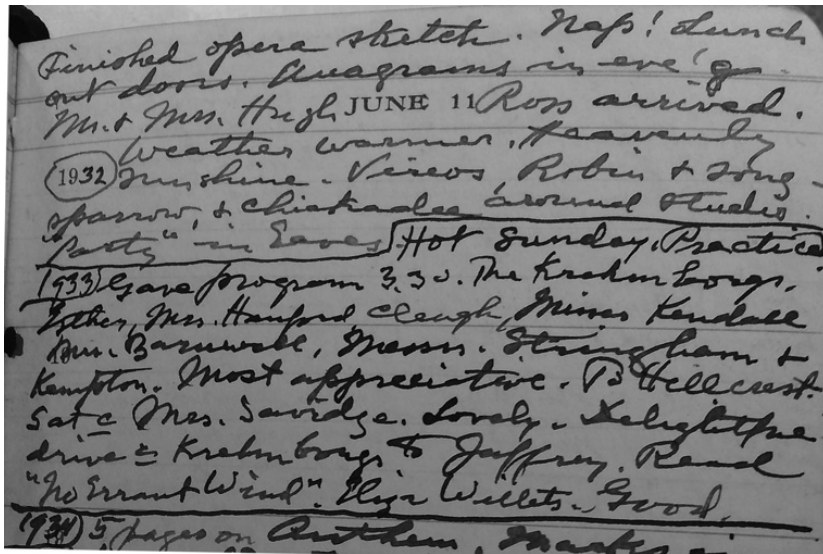 Finished opera sketch. Naps! Lunch
out doors. Anagrams in eve'g.
Mr. & Mrs. Hugh JUNE 11 Ross arrived.
Weather warmer. Heavenly
1932 sunshine. Vireos, Robin & song-
sparrow, & chickadee around studio.
"Party" in Eaves Hot Sunday. Practice
1933 Gave program 3.30. The Krehmborgs,
Esther, Mrs. Hanford, Clough, Misses Kendall
Barnwell, Messrs. Stringham &
Kempton. Most appreciative. To Hillcrest.
Sat c Mrs. Savidge. Lovely. Delightful
drive c Krehmborgs to Jaffrey. Read
"No Errant Wind". Eliza Willets. Good.
1934 5 pages on Anthem,